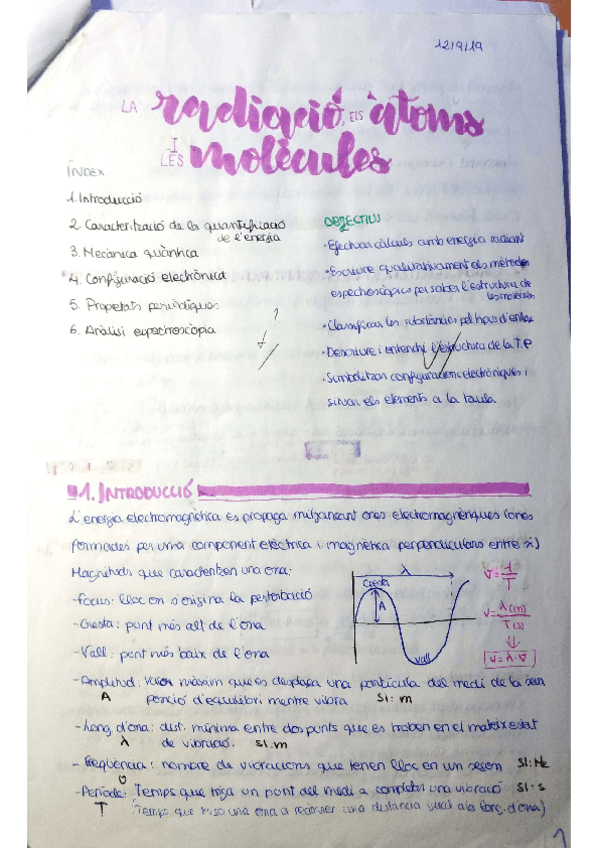 12/9/19
LA radiació, ELS àtoms
I LES molècules
ÍNDEX
1. Introducció
2. Caracterització de la quantificació
de l'energia
3. Mecànica quàntica
4. Configuració electrònica
5. Propietats periòdiques
6. Anàlisi espectroscòpia
OBJECTIUS
· Efectuar càlculs amb energia radiant
· Escriure qualitativament els mètodes
espectroscòpics per saber l'estructura de
les molècules
· Classificar les substàncies pel tipus d'enllaç
· Descriure i entendre l'estructura de la T.P
· Simbolitzar configuracions electròniques i
situar els elements a la taula
1. INTRODUCCIÓ
L'energia electromagnètica es propaga mitjançant ones electromagnètiques (ones
formades per una component elèctrica i magnètica perpendiculars entre si)
Magnituds que caracteritzen una ona:
- Focus: lloc on s'origina la pertorbació
- Cresta: punt més alt de l'ona
- Vall: punt més baix de l'ona
λ
Cresta
A
Vall
V = λ/T
V = λ (m)/T (s)
⇓
V = λ · ν
- Amplitud: valor màxim que es desplaça una partícula del medi de la seva
A posició d'equilibri mentre vibra SI: m
- Long. d'ona: dist. mínima entre dos punts que es troben en el mateix estat
λ de vibració. SI: m
- Freqüència: nombre de vibracions que tenen lloc en un segon SI: Hz
ν
- Període: Temps que triga un punt del medi a completar una vibració SI: s
T (Temps que triga una ona a recórrer una distància igual a la long. d'ona)
1